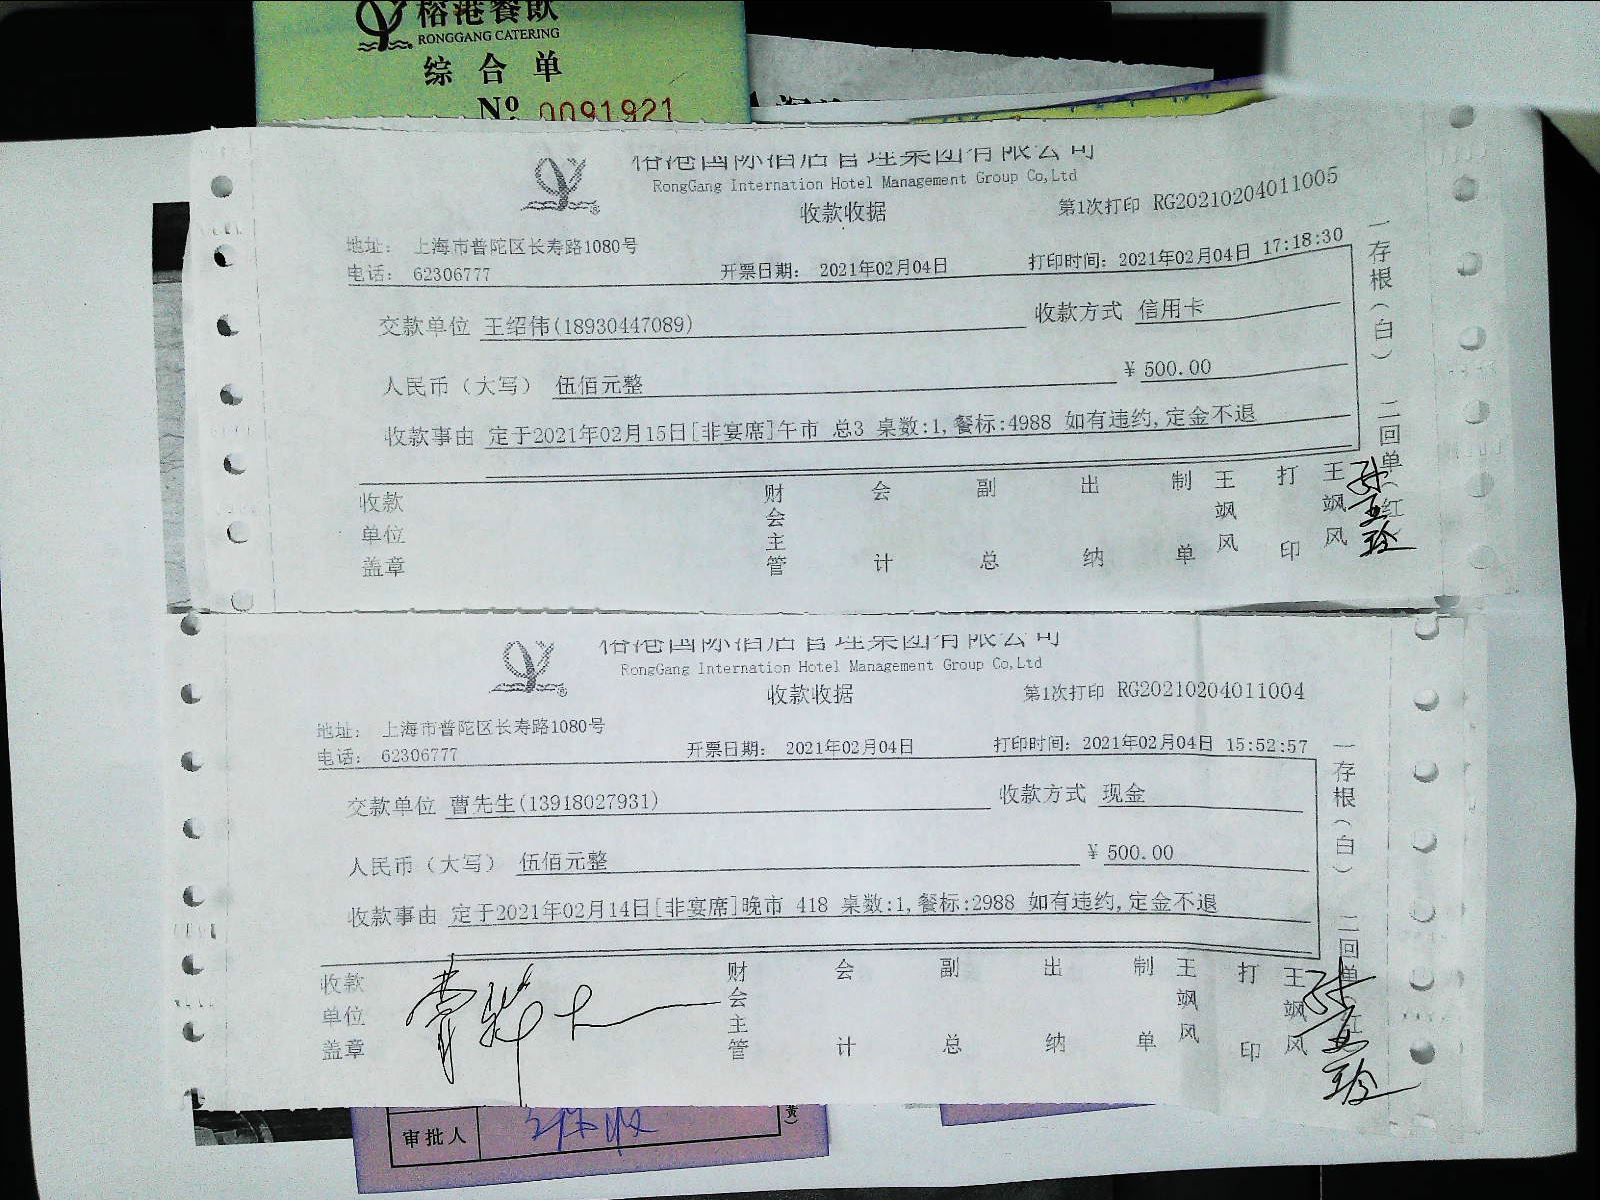 榕港餐飲
RONGGANG CATERING
综合单
Nº 0091921
榕港国际酒店管理集团有限公司
RongGang Internation Hotel Management Group Co,Ltd
收款收据
第1次打印 RG20210204011005
地址： 上海市普陀区长寿路1080号
电话： 62306777
开票日期： 2021年02月04日
打印时间：2021年02月04日 17:18:30
交款单位 王绍伟(18930447089)
收款方式 信用卡
人民币（大写） 伍佰元整
¥ 500.00
收款事由 定于2021年02月15日[非宴席]午市 总3 桌数:1,餐标:4988 如有违约,定金不退
收款单位盖章
财会主管
会计
副总
出纳
制单
王飒风
打印
王飒风
一存根（白） 二回单（红
榕港国际酒店管理集团有限公司
RongGang Internation Hotel Management Group Co,Ltd
收款收据
第1次打印 RG20210204011004
地址： 上海市普陀区长寿路1080号
电话： 62306777
开票日期： 2021年02月04日
打印时间：2021年02月04日 15:52:57
交款单位 曹先生(13918027931)
收款方式 现金
人民币（大写） 伍佰元整
¥ 500.00
收款事由 定于2021年02月14日[非宴席]晚市 418 桌数:1,餐标:2988 如有违约,定金不退
收款单位盖章
财会主管
会计
副总
出纳
制单
王飒风
打印
王飒风
一存根（白） 二回单（红
审批人
黄）